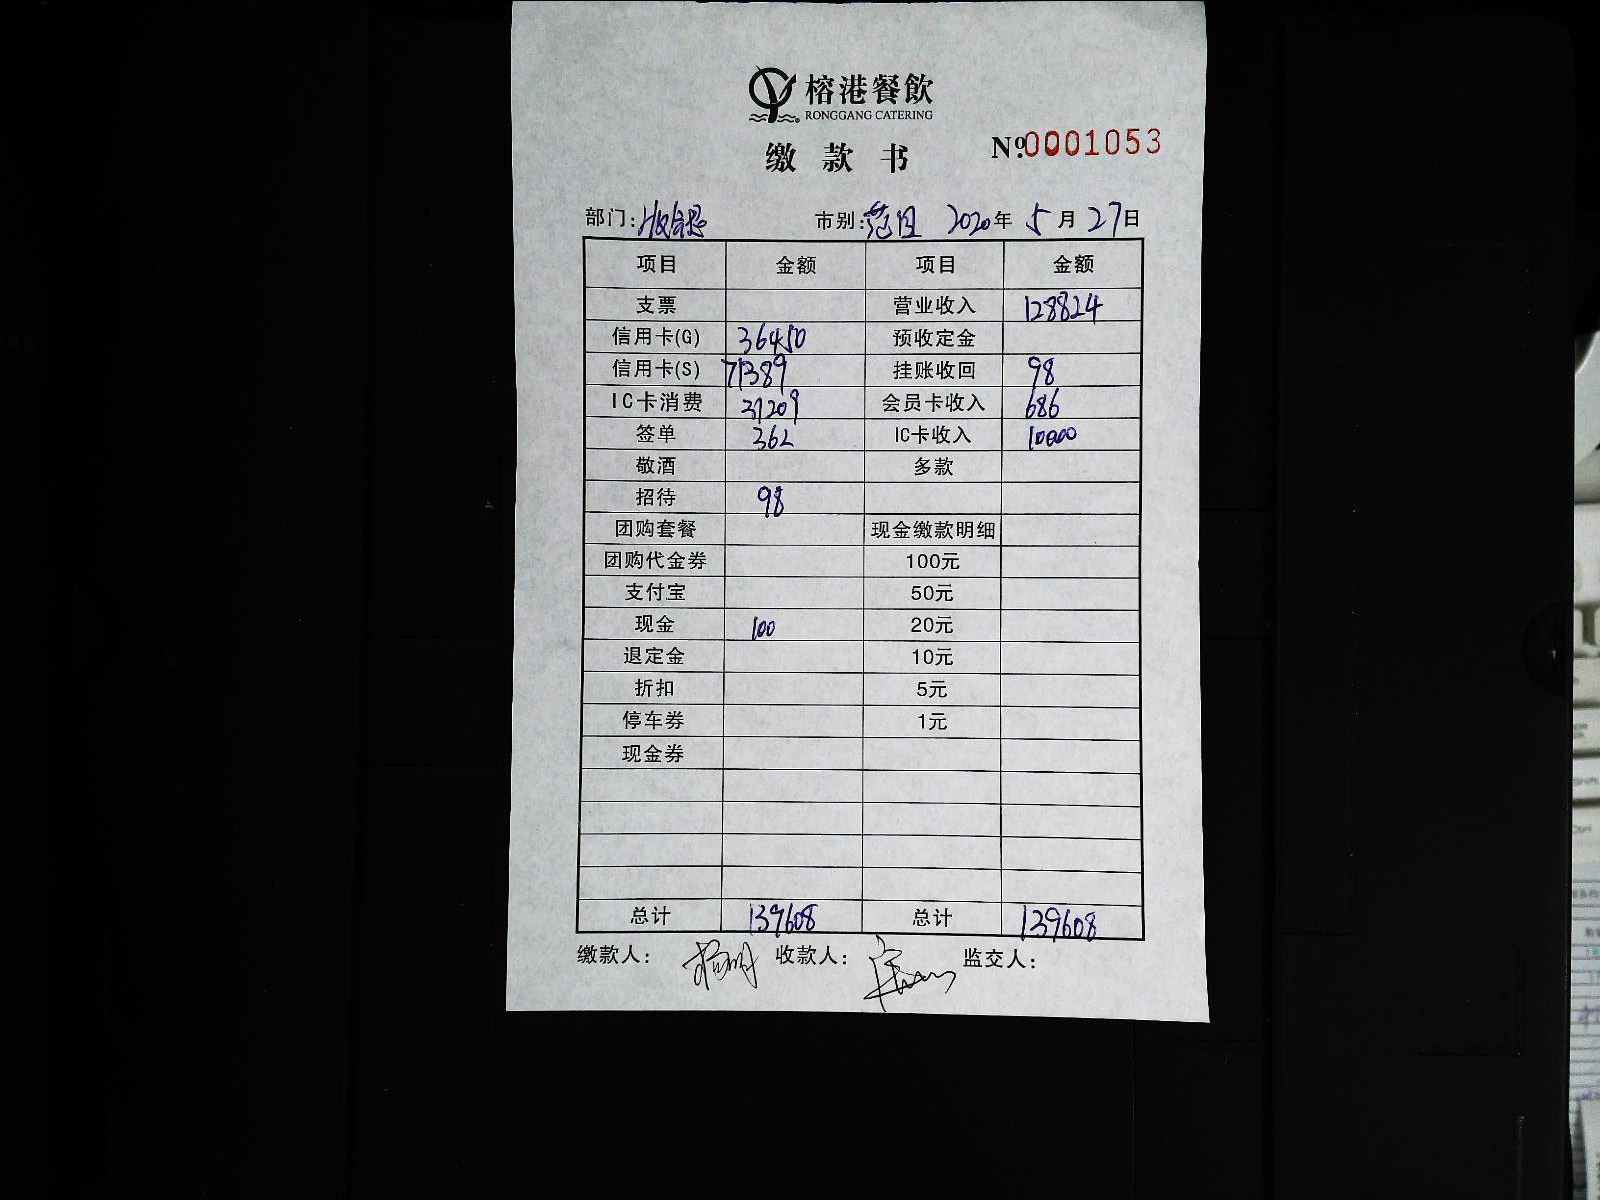 榕港餐飲
RONGGANG CATERING
缴款书 №0001053
部门: 市别: 2020年 5月 27日
项目 金额 项目 金额
支票 营业收入 128824
信用卡(G) 36450 预收定金
信用卡(S) 71389 挂账收回 98
IC卡消费 31209 会员卡收入 686
签单 362 IC卡收入 10000
敬酒 多款
招待 98
团购套餐 现金缴款明细
团购代金券 100元
支付宝 50元
现金 100 20元
退定金 10元
折扣 5元
停车券 1元
现金券
总计 139608 总计 139608
缴款人: 收款人: 监交人: